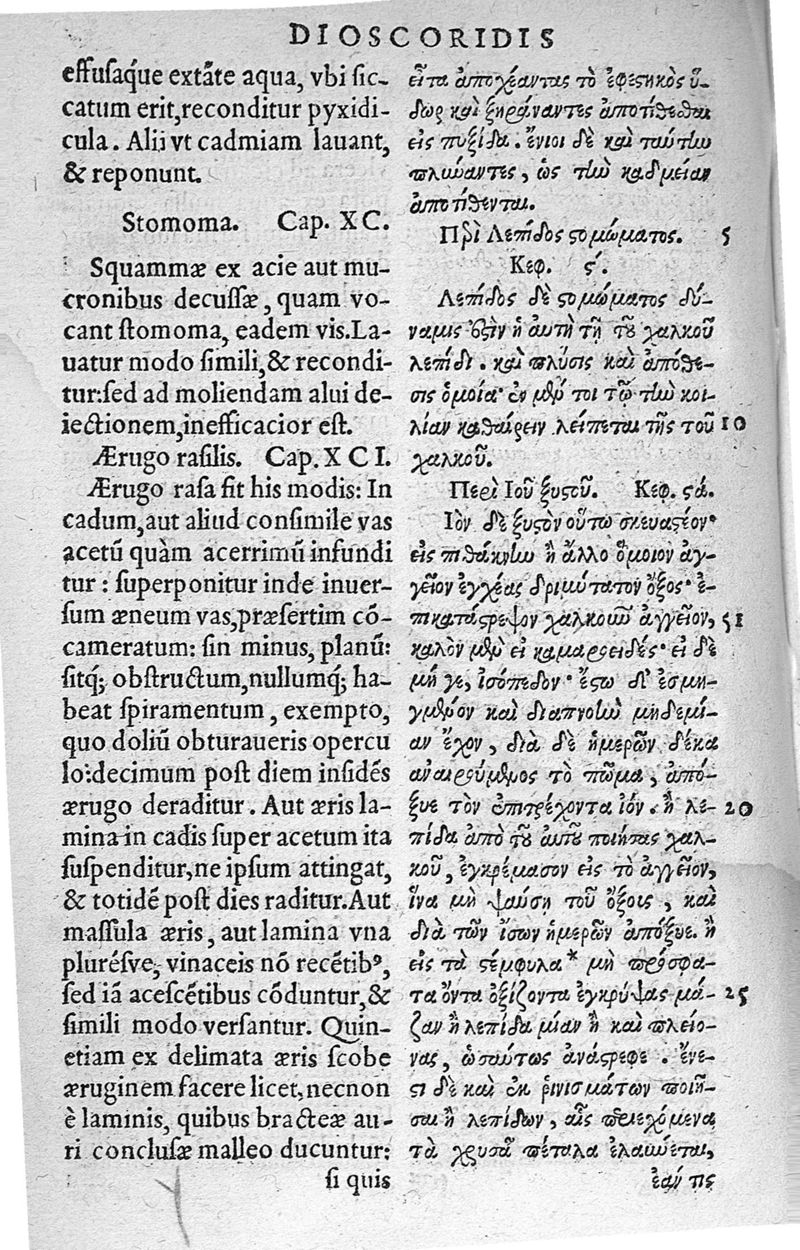 DIOSCORIDIS
effusaq́ue extāte aqua, vbi sic-
catum erit, reconditur pyxidi-
cula. Alij vt cadmiam lauant,
& reponunt.
Stomoma. Cap. XC.
Squammæ ex acie aut mu-
cronibus decussæ, quam vo-
cant stomoma, eadem vis. La-
uatur modo simili, & recondi-
tur: sed ad moliendam alui de-
iectionem, inefficacior est.
Ærugo rasilis. Cap. XCI.
Ærugo rasa fit his modis: In
cadum, aut aliud consimile vas
acetū quàm acerrimū infundi
tur: superponitur inde inuer-
sum æneum vas, præsertim cō-
cameratum: sin minus, planū:
sitq́; obstructum, nullumq́; ha-
beat spiramentum, exempto,
quo doliū obturaueris opercu
lo: decimum post diem insidēs
ærugo deraditur. Aut æris la-
mina in cadis super acetum ita
suspenditur, ne ipsum attingat,
& totidē post dies raditur. Aut
massula æris, aut lamina vna
plurésve, vinaceis nō recētibꝰ,
sed iā acescētibus cōduntur, &
simili modo versantur. Quin-
etiam ex delimata æris scobe
æruginem facere licet, necnon
è laminis, quibus bracteæ au-
ri conclusæ malleo ducuntur:
si quis
εἶτα ἀποχέαντας τὸ ἐφεστηκὸς ὕ-
δωρ καὶ ξηράναντες ἀποτίθεθαι
εἰς πυξίδα. ἔνιοι δὲ καὶ ταύτην
πλύναντες, ὡς τὴν καδμείαν
ἀποτίθενται.
Περὶ Λεπίδος στομώματος. 5
Κεφ. ϛʹ.
Λεπίδος δὲ στομώματος δύ-
ναμις ἐστὶν ἡ αὐτὴ τῇ τοῦ χαλκοῦ
λεπίδι. καὶ πλύσις καὶ ἀπόθε-
σις ὁμοία· ἐν μέν τοι τῷ τὴν κοι-
λίαν καθαίρειν λείπεται τῆς τοῦ 10
χαλκοῦ.
Περὶ Ἰοῦ ξυστοῦ. Κεφ. ϛά.
Ἰὸν δὲ ξυστὸν οὕτω σκευαστέον·
εἰς πιθάκνην ἢ ἄλλο ὅμοιον ἀγ-
γεῖον ἐγχέας δριμύτατον ὄξος· ἐ-
πικατάστρεψον χαλκοῦν ἀγγεῖον, 51
καλὸν μὲν εἰ καμαροειδές· εἰ δὲ
μή γε, ἰσόπεδον· ἔστω δ' ἐσμη-
γμένον καὶ διαπνοὴν μηδεμί-
αν ἔχον, διὰ δὲ ἡμερῶν δέκα
ἀναιρούμενος τὸ πῶμα, ἀπό-
ξυε τὸν ἐπιτρέχοντα ἰόν. ἢ λε- 20
πίδα ἀπὸ τοῦ αὐτοῦ ποιήσας χαλ-
κοῦ, ἐγκρέμασον εἰς τὸ ἀγγεῖον,
ἵνα μὴ ψαύσῃ τοῦ ὄξοις, καὶ
διὰ τῶν ἴσων ἡμερῶν ἀπόξυε. ἢ
εἰς τὰ στέμφυλα* μὴ πρόσφα-
τα ὄντα ὀξίζοντα ἐγκρύψας μά- 25
ζαν ἢ λεπίδα μίαν ἢ καὶ πλείο-
νας, ὡσαύτως ἀνάστρεφε. ἔνε-
στι δὲ καὶ ἐκ ῥινισμάτων ποιῆ-
σαι ἢ λεπίδων, αἷς περιεχόμενα
τὰ χρυσᾶ πέταλα ἐλαύνεται,
ἐάν τις